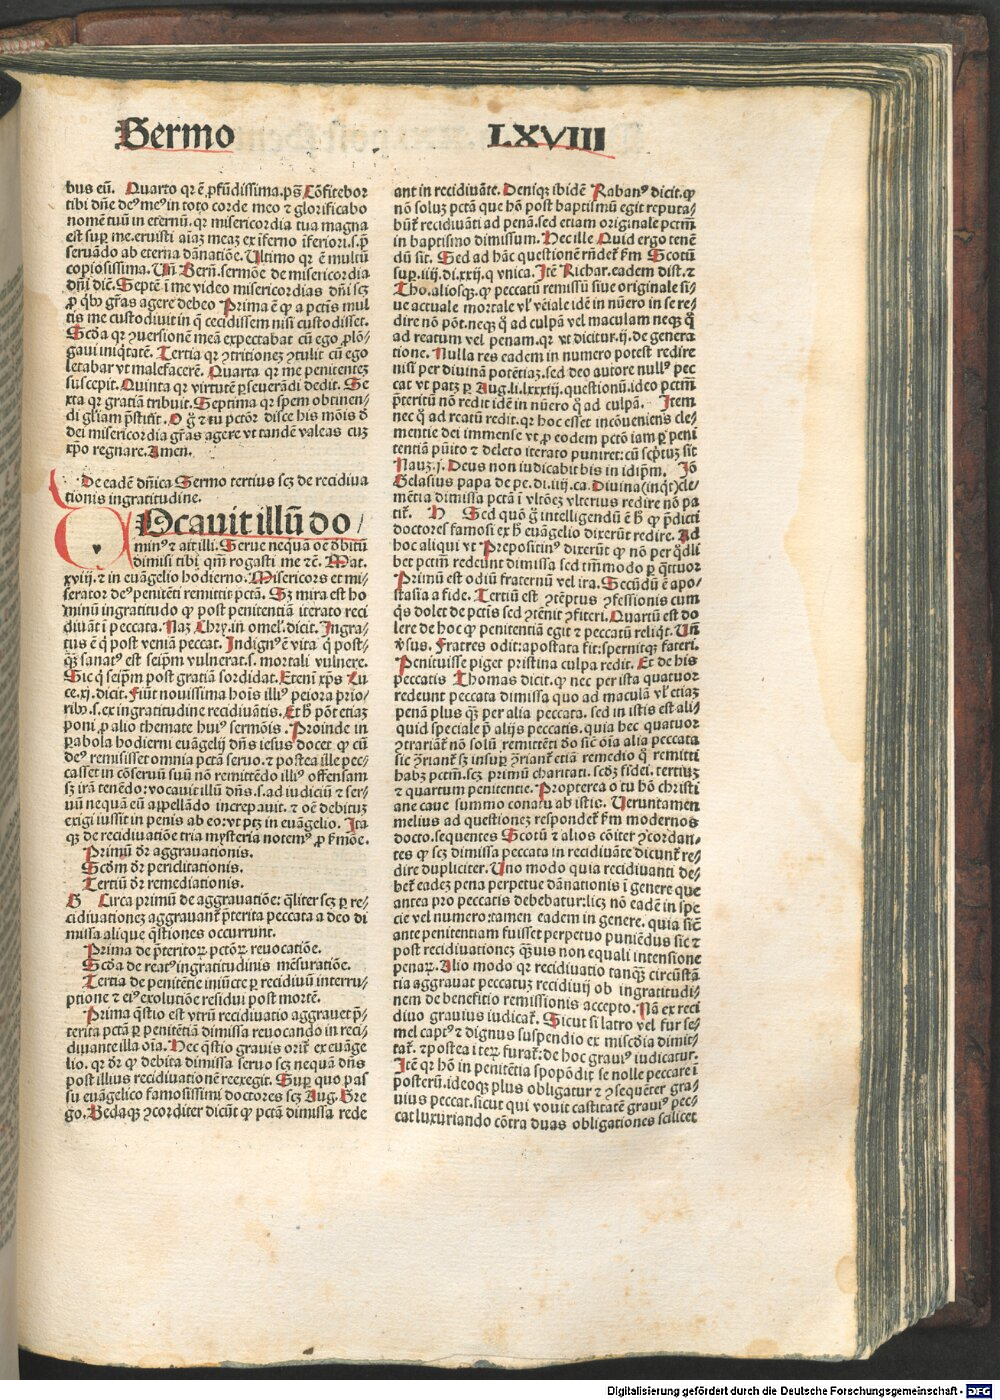 Sermo LXVIII
bus eū. Quarto qr ē ꝓfūdissima.ps̄ Cōfitebor
tibi dn̄e deꝰ meꝰ in toto corde meo ⁊ glorificabo
nomē tuū in eternū. qr misericordia tua magna
est suꝑ me. eruisti aīaꝫ meaꝫ ex īferno īferiori. s. p̄
seruādo ab eterna dānatiōe. Ultimo qr ē multū
copiosissima. Un̄ Bern̄. sermōe de misericordia
dn̄i dicē. Septē ī me video misericordias dn̄i scꝫ
ꝓ qbꝰ gr̄as agere debeo Prima ē ꝙ a pctīs mul
tis me custodiuit in q̄ cecidissem nisi custodisset.
Scd̄a qr ꝯuersionē meā expectabat cū ego ꝓlō-
gaui iniqtatē. Tertia qr ꝯtritioneꝫ ꝯtulit cū ego
letabar vt malefacerē. Quarta qr me penitenteꝫ
suscepit. Quinta qr virtutē ꝑseuerādi dedit. Se
xta qr gratiā tribuit. Septima qr spem obtinen-
di gl̄iam p̄stitit. O ḡ ⁊ tu pctōr disce his mōis d̄
dei misericordia gr̄as agere vt tandē valeas cuꝫ
xp̄o regnare. Amen.
De eadē dn̄ica Sermo tertius scꝫ de recidiua
tionis ingratitudine.
Ocauit illū do/
minꝰ ⁊ ait illi. Serue nequa oē d̄bitū
dimisi tibi qm̄ rogasti me ⁊c̄. Mat.
xviij. ⁊ in euāgelio hodierno. Misericors et mi-
serator deꝰ penitēti remittit pctā. Sꝫ mira est ho
minū ingratitudo ꝙ post penitentiā iterato reci
diuāt ī peccata. Naꝫ Chry. in omel̄. dicit. Ingra-
tus ē q̄ post veniā peccat. Indignꝰ ē vita q̄ post-
qꝫ̄ sanatꝰ est seipm̄ vulnerat. s. mortali vulnere.
Sic q̄ seipm̄ post gratiā sordidat. Eteni xp̄s Lu
ce. xj. dicit. Fiūt nouissima hoīs illiꝰ peiora prio-
ribꝰ. s. ex ingratitudine recidiuātis. Et h̄ pōt etiaꝫ
poni ꝓ alio themate huiꝰ sermōis. Proinde in
ꝑabola hodierni euāgelij dn̄s iesus docet ꝙ cū
deꝰ remisisset omnia pctā seruo. ⁊ postea ille pec-
casset in cōseruū suū nō remittēdo illiꝰ offensam
sꝫ irā tenēdo: vocauit illū dn̄s. s. ad iudiciū ⁊ ser-
uū nequā eū appellādo increpauit. ⁊ oē debituꝫ
exigi iussit in penis ab eo: vt ptꝫ in euāgelio. Ita
qꝫ de recidiuatiōe tria mysteria notemꝰ ꝓ f̄mōe.
Primū dr̄ aggrauationis.
Scd̄m dr̄ periclitationis.
Tertiū dr̄ remediationis.
G Circa primū de aggrauatiōe: qliter scꝫ ꝑ re-
cidiuationeꝫ aggrauant̄ p̄terita peccata a deo di
missa alique q̄stiones occurrunt.
Prima de p̄teritoꝝ pctōꝝ reuocatiōe.
Scd̄a de reatꝰ ingratitudinis mēsuratiōe.
Tertia de penitētie iniūcte ꝑ recidiuū interru-
ptione ⁊ eiꝰ exolutiōe residui post mortē.
Prima q̄stio est vtrū recidiuatio aggrauet p̄-
terita pctā ꝑ penitētiā dimissa reuocando in reci-
diuante illa oīa. Hec q̄stio grauis orit̄ ex euāge
lio. qr dr̄ ꝙ debita dimissa seruo scꝫ nequā dn̄s
post illius recidiuationē reexegit. Suꝑ quo pas
su euāgelico famosissimi doctores scꝫ Aug. Gre
go. Bedaqꝫ ꝯcorditer dicūt ꝙ pctā dimissa rede
ant in recidiuāte. Deniqꝫ ibidē Rabanꝰ dicit. ꝙ
nō soluꝫ pctā que hō post baptismū egit reputa-
būt̄ recidiuāti ad penā. sed etiam originale pctm̄
in baptismo dimissum. Hec ille Quid ergo tenē
dū sit. Sed ad hāc questionē rn̄det̄ f̄m Scotū
suꝑ. iiij. di. xxij. q. vnica. Itē Richar. eadem dist. ⁊
Tho. aliosqꝫ. ꝙ peccatū remissū siue originale si-
ue actuale mortale vl̓ vēiale idē in nūero in se re-
dire nō pōt. neqꝫ q̄ ad culpā vel maculam neqꝫ q̄
ad reatum vel penam. qr vt dicitur. ij. de genera
tione. Nulla res eadem in numero potest redire
nisi per diuinā potētiaꝫ. sed deo autore nullꝰ pec
cat vt patꝫ ꝑ Aug. li. lxxxiij. questionū. ideo pctm̄
p̄teritū nō redit idē in nūero q̄ ad culpā. Item
nec q̄ ad reatū redit. qr hoc esset incōueniens cle-
mentie dei immense vt ꝓ eodem pctō iam ꝑ peni
tentiā pūito ⁊ deleto iterato puniret: cū scp̄tuꝫ sit
Nauꝫ. j. Deus non iudicabit bis in idip̄m. Jō
Gelasius papa de pe. di. iiij. ca. Diuina (inqt) cle-
mētia dimissa pctā ī vltōeꝫ vlterius redire nō pa
tit̄. H Sed quō ḡ intelligendū ē h̄ ꝙ p̄dicti
doctores famosi ex h̄ euangelio dixerūt redire. Ad
hoc aliqui vt Prepositinꝰ dixerūt ꝙ nō per qd̄li
bet pctm̄ redeunt dimissa sed tm̄modo ꝑ q̄ttuor
Primū est odiū fraternū vel ira. Secūdū ē apo-
stasia a fide. Tertiū est ꝯtēptus ꝯfessionis cum
qs dolet de pctīs sed ꝯtēnit ꝯfiteri. Quartū est do
lere de hoc ꝙ penitentiā egit ⁊ peccatū reliqt. Un̄
v̄sus. Fratres odit: apostata fit: spernitqꝫ fateri.
Penituisse piget pristina culpa redit. Et de his
peccatis Thomas dicit. ꝙ nec per ista quatuor
redeunt peccata dimissa quo ad maculā vl̓ etiaꝫ
penā plus qꝫ̄ per alia peccata. sed in istis est ali-
quid speciale p̄ alijs peccatis. quia hec quatuor
ꝯtrariāt̄ nō solū remittēti do sic oīa alia peccata
sic ꝯ̄riant̄ sꝫ insuꝑ ꝯ̄riant̄ etiā remedio q̄ remitti
habꝫ pctm̄. scꝫ primū charitati. scd̄ꝫ fidei. tertiuꝫ
⁊ quartum penitentie. Propterea o tu hō christi
ane caue summo conatu ab istis. Ueruntamen
melius ad questioneꝫ respondet̄ f̄m modernos
docto. sequentes Scotū ⁊ alios cōiter ꝯcordan-
tes ꝙ scꝫ dimissa peccata in recidiuāte dicunt̄ re-
dire dupliciter. Uno modo quia recidiuanti de-
bet̄ eadeꝫ pena perpetue dānationis ī genere que
antea pro peccatis debebatur: licꝫ nō eadē in spe
cie vel numero: tamen eadem in genere. quia sic̄
ante penitentiam fuisset perpetuo puniēdus sic ⁊
post recidiuationeꝫ qꝫ̄uis non equali intensione
penaꝝ. Alio modo qr recidiuatio tanqꝫ̄ circūstā
tia aggrauat peccatuꝫ recidiuij ob ingratitudi-
nem de benefitio remissionis accepto. Nā ex reci
diuo grauius iudicat̄. Sicut si latro vel fur se-
mel captꝰ ⁊ dignus suspendio ex miscd̄ia dimit-
tat̄. ⁊ postea iteꝝ furat̄: de hoc grauiꝰ iudicatur.
Itē qr hō in penitētia spopōdit se nolle peccare ī
posterū. ideoqꝫ plus obligatur ⁊ ꝯseqnēter gra-
uius peccat. sicut qui vouit castitatē grauiꝰ pec-
cat luxuriando cōtra duas obligationes scilicet
Digitalisierung gefördert durch die Deutsche Forschungsgemeinschaft - DFG